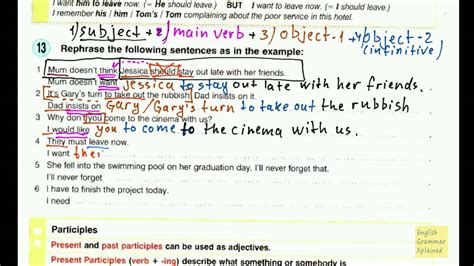 want him to leave now. (= He should leave.) BUT I want to leave now. (= I should leave.)
I remember his / him / Tom's / Tom complaining about the poor service in this hotel.
1) subject + 2) main verb + 3) object-1 + 4) object-2
(infinitive)
13 Rephrase the following sentences as in the example:
1 Mum doesn't think Jessica should stay out late with her friends.
Mum doesn't want jessica to stay out late with her friends.
2 It's Gary's turn to take out the rubbish. Dad insists on it.
Dad insists on Gary/Gary's turn to take out the rubbish
3 Why don't you come to the cinema with us?
I would like you to come to the cinema with us.
4 They must leave now.
I want thei
5 She fell into the swimming pool on her graduation day. I'll never forget that.
I'll never forget
6 I have to finish the project today.
I need
Participles
Present and past participles can be used as adjectives.
Present Participles (verb + -ing) describe what something or somebody is
English
Grammar
Xplained